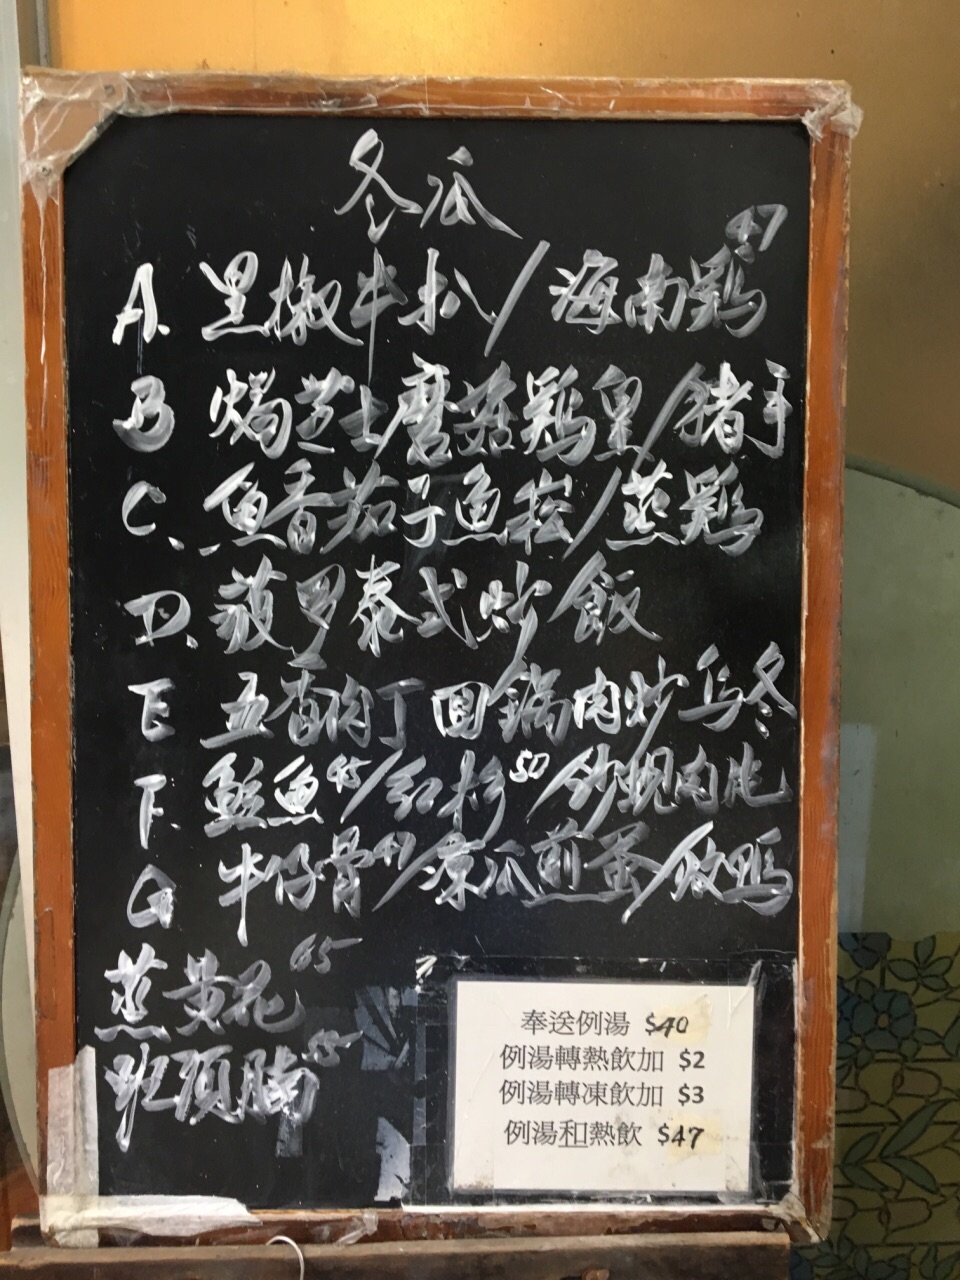 冬瓜
A. 黑椒牛扒/海南鷄 47
B 焗芝士磨菇鷄皇/豬手
C. 魚香茄子魚崧/蒸鷄
D. 菠罗泰式炒飯
E 五香肉丁 回鍋肉炒乌冬
F. 鯇魚45/红衫50/炒蜆肉
G 牛仔骨47/凉瓜煎蛋/鴨
蒸黄花65
班頭腩55
奉送例湯 $40
例湯轉熱飲加 $2
例湯轉凍飲加 $3
例湯和熱飲 $47